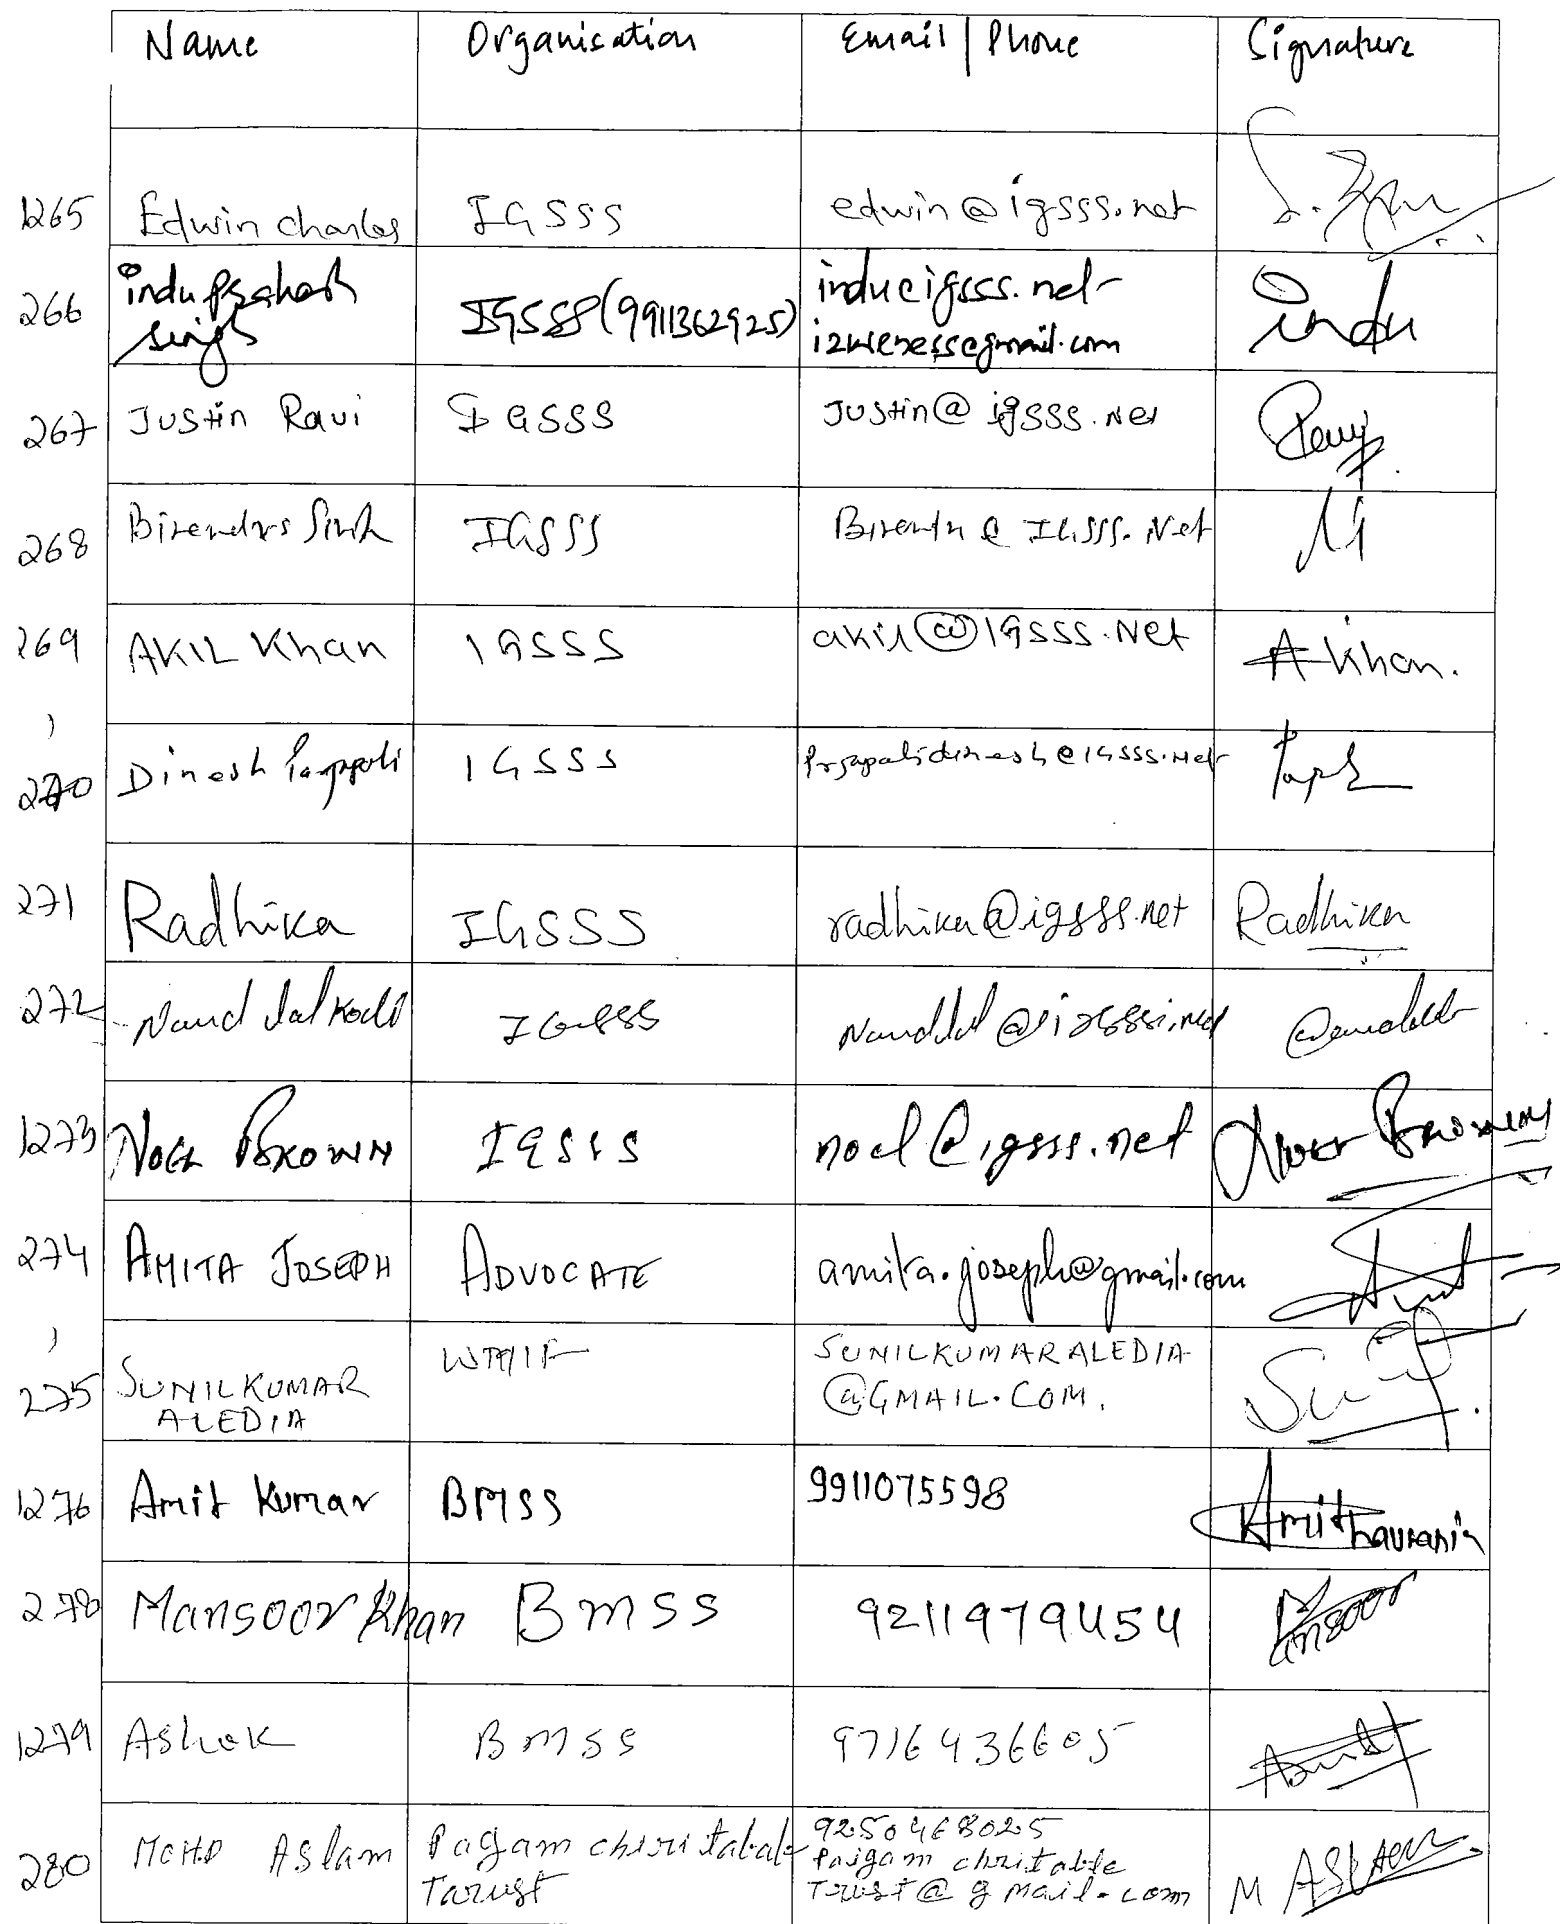 Name Organisation Email | Phone Signature
1265 Edwin Charles IGSSS edwin@igsss.net
266 indu Prakash singh IGSSS (9911362925) indu@igsss.net indu
267 Justin Ravi IGSSS Justin@igsss.Net
268 Birendra IGSSS @ IGSSS.Net
269 AKIL Khan IGSSS akil@IGSSS.Net A Khan.
270 Dinesh IGSSS Prjapatidinesh@IGSSS.Net
271 Radhika IGSSS radhika@igsss.net Radhika
272 Nand Lal IGSSS
1273 NOEL BROWN IGSSS noel@igsss.net Noel Brown
274 AMITA JOSEPH ADVOCATE amita.joseph@gmail.com
275 SUNILKUMAR SUNILKUMARALEDIA
ALEDIA @GMAIL.COM.
1276 Amit Kumar BMSS 9911075598 Amit
278 Mansoor Khan BMSS 9211979454 Mansoor
1279 Ashok BMSS 9716436605
280 MOHD Aslam Pagam 9250468025 M ASLAM
Tarust Paigam chritable
Trust@gmail.com